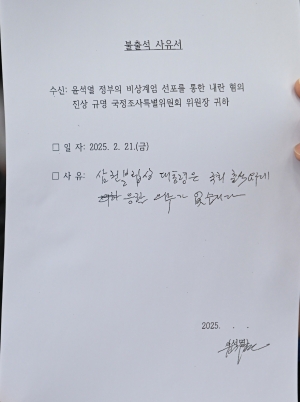 불출석 사유서
수신: 윤석열 정부의 비상계엄 선포를 통한 내란 혐의
진상 규명 국정조사특별위원회 위원장 귀하
□ 일 자: 2025. 2. 21.(금)
□ 사 유: 삼권분립상 대통령은 국회 출석요구에
응할 의무가 없습니다
2025. . .